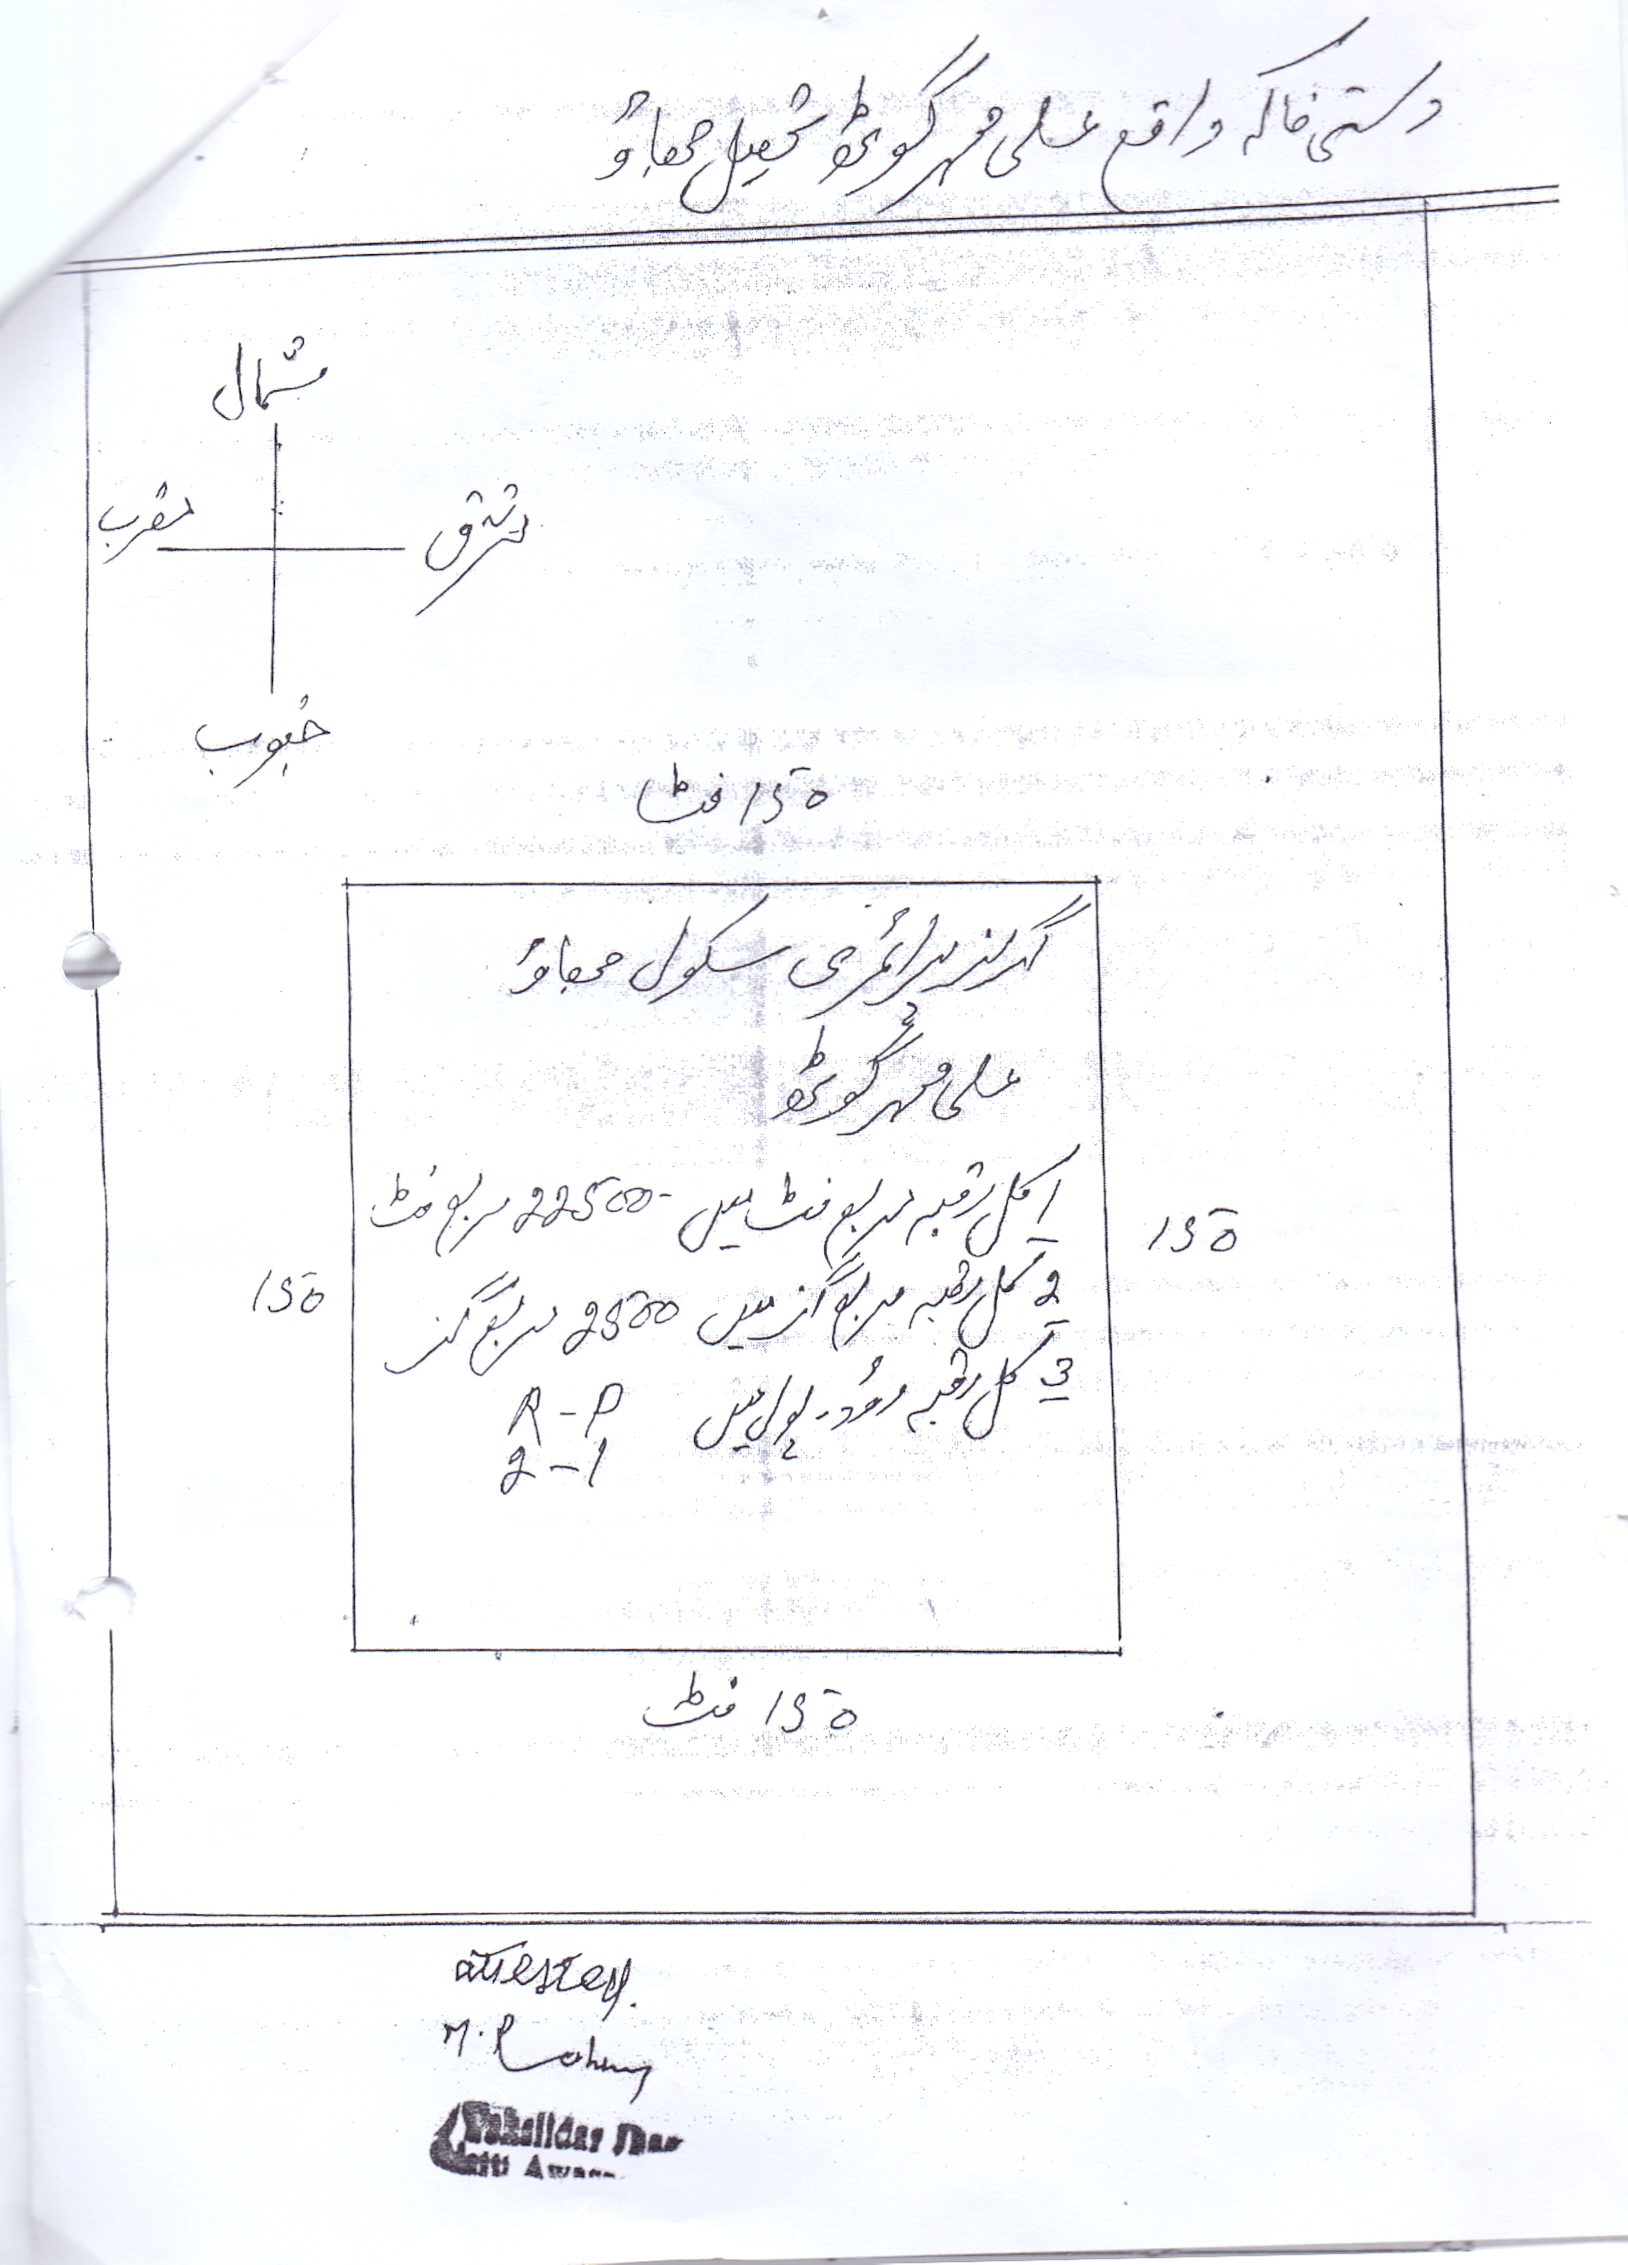 دستی خاکہ واقع علی مہر گوٹھ تحصیل جھاؤ
شمال
مغرب
مشرق
جنوب
150 فٹ
گرلز پرائمری سکول جھاؤ
علی مہر گوٹھ
1 کل رقبہ مربع فٹ میں 22500 مربع فٹ
2 کل رقبہ مربع گز میں 2500 مربع گز
3 کل رقبہ روڈ۔ پول میں R - P
2 - 1
150
150
150 فٹ
attested.